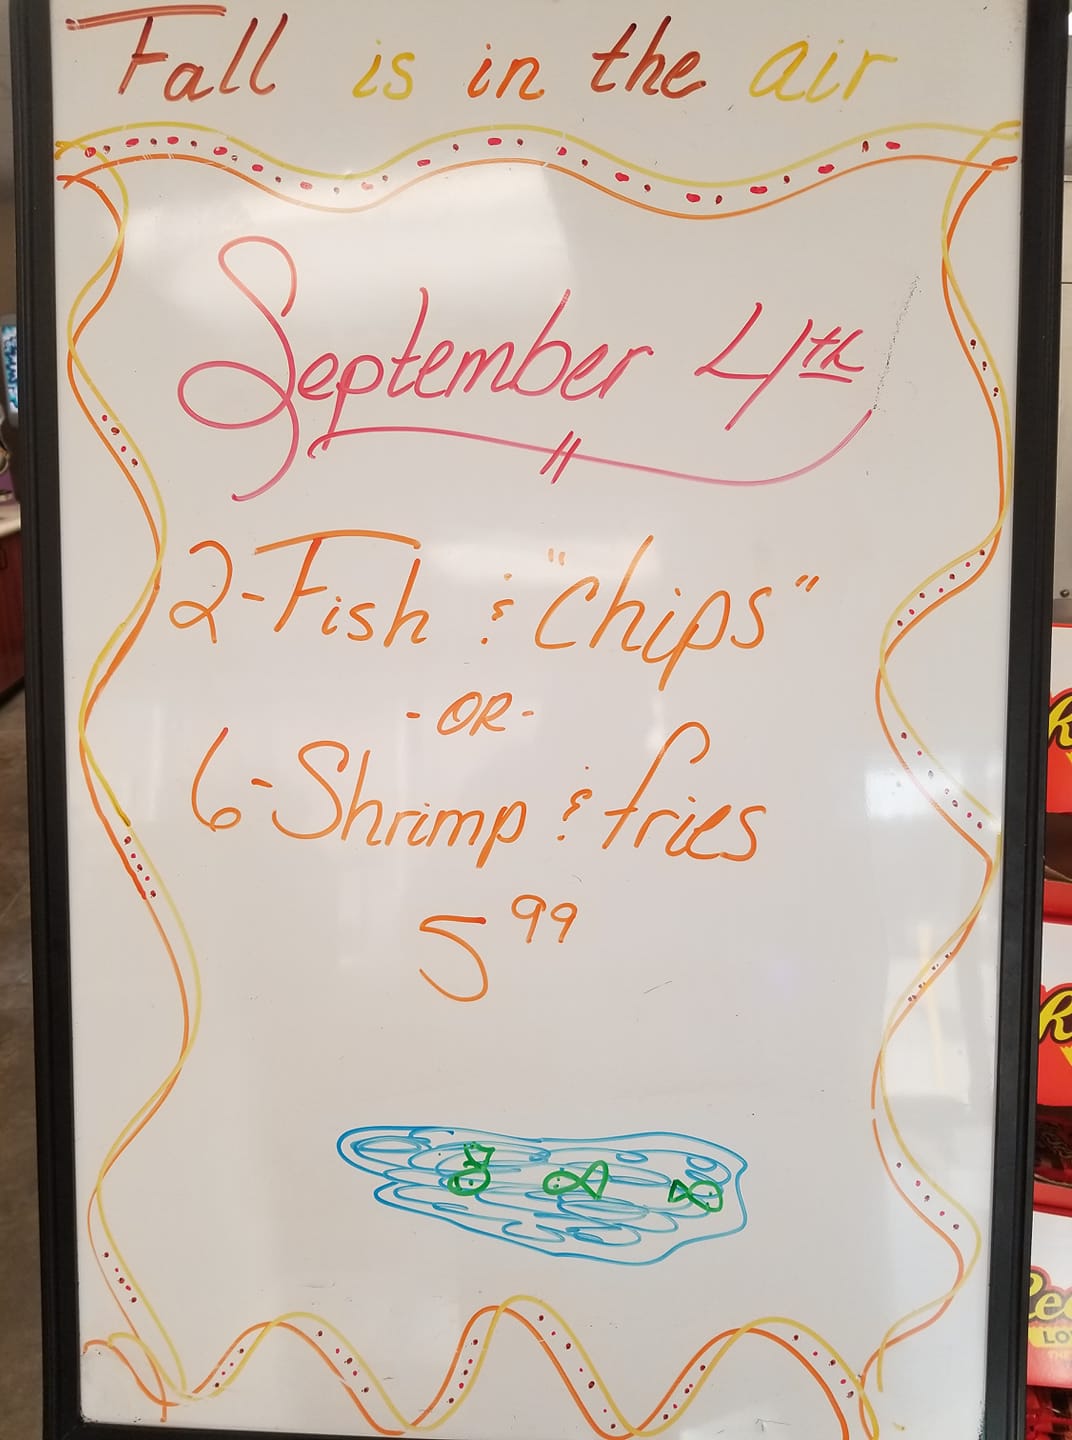 Fall is in the air
September 4th
2-Fish & "Chips"
-OR-
6-Shrimp & fries
5 99